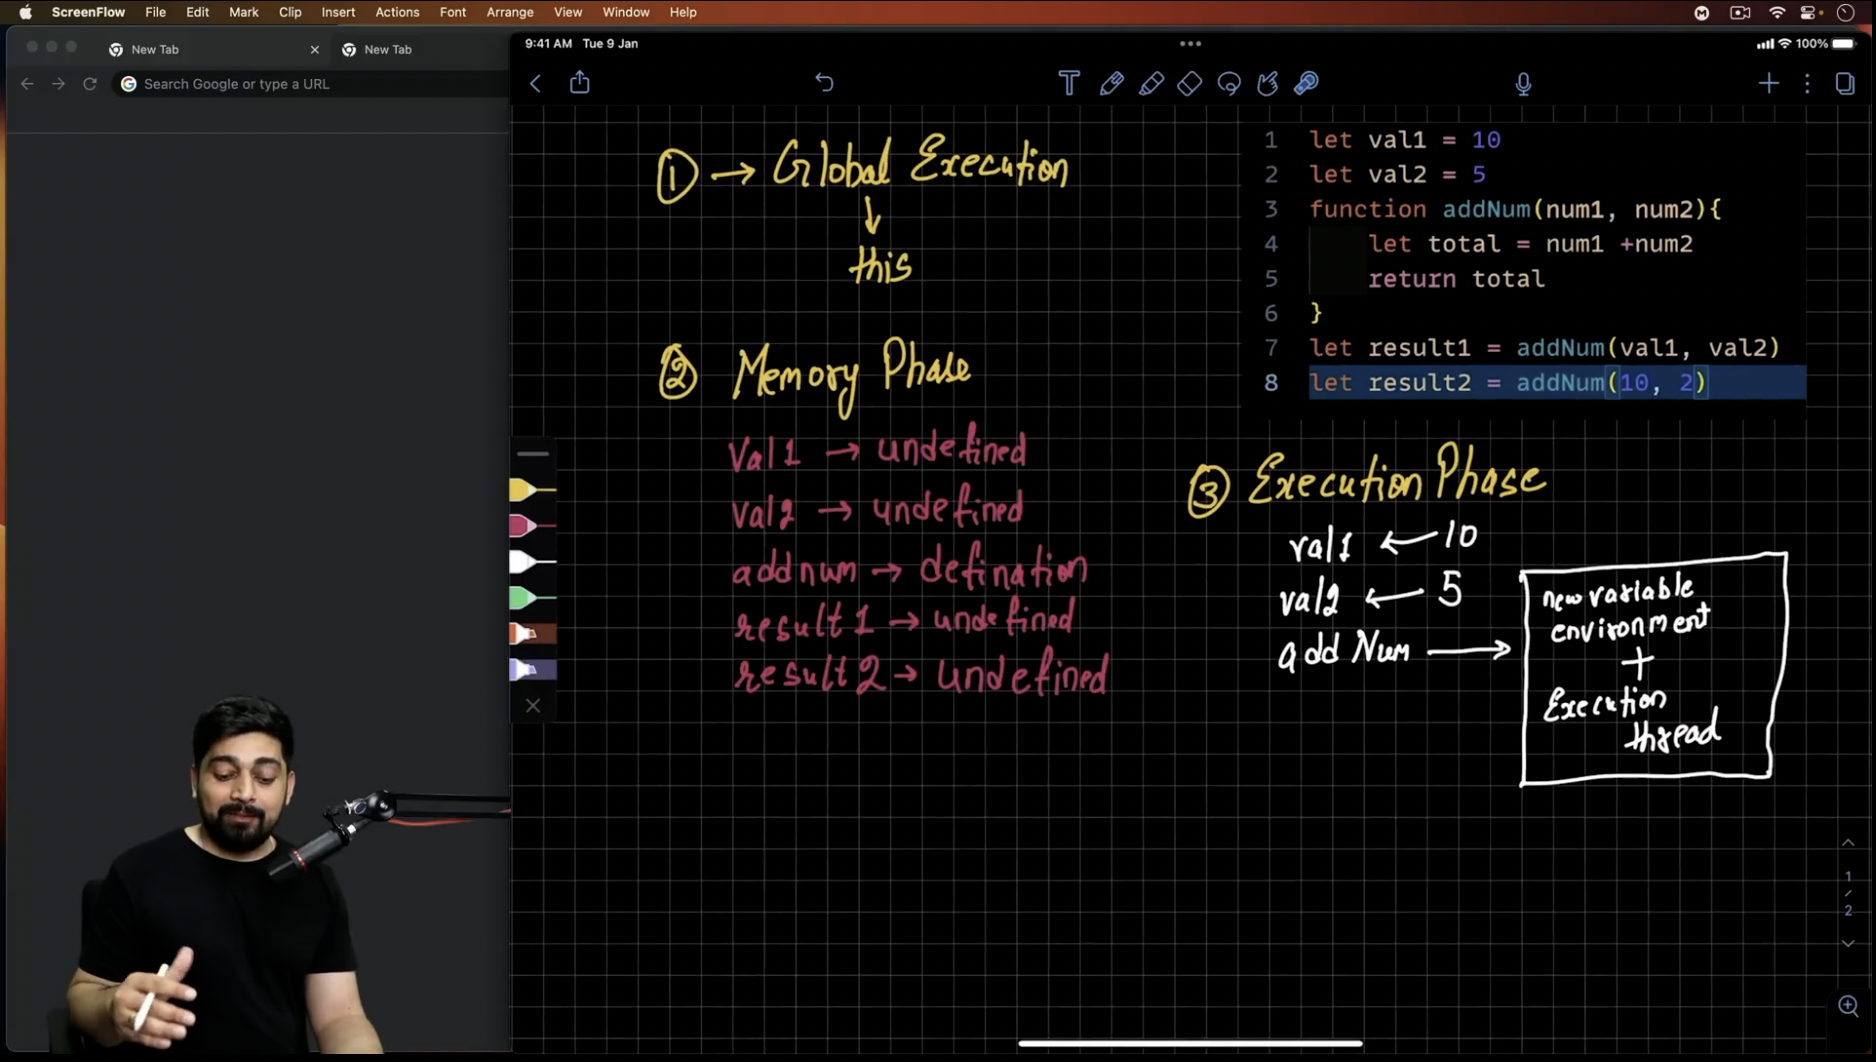 ScreenFlow File Edit Mark Clip Insert Actions Font Arrange View Window Help
New Tab
New Tab
Search Google or type a URL
9:41 AM Tue 9 Jan
100%
1 → Global Execution
↓
this
2 Memory Phase
Val1 → undefined
val2 → undefined
addnum → defination
result1 → undefined
result2 → undefined
1 let val1 = 10
2 let val2 = 5
3 function addNum(num1, num2){
4 let total = num1 +num2
5 return total
6 }
7 let result1 = addNum(val1, val2)
8 let result2 = addNum(10, 2)
3 Execution Phase
val1 ← 10
val2 ← 5
addNum →
new variable
environment
+
Execution
thread
1
/
2